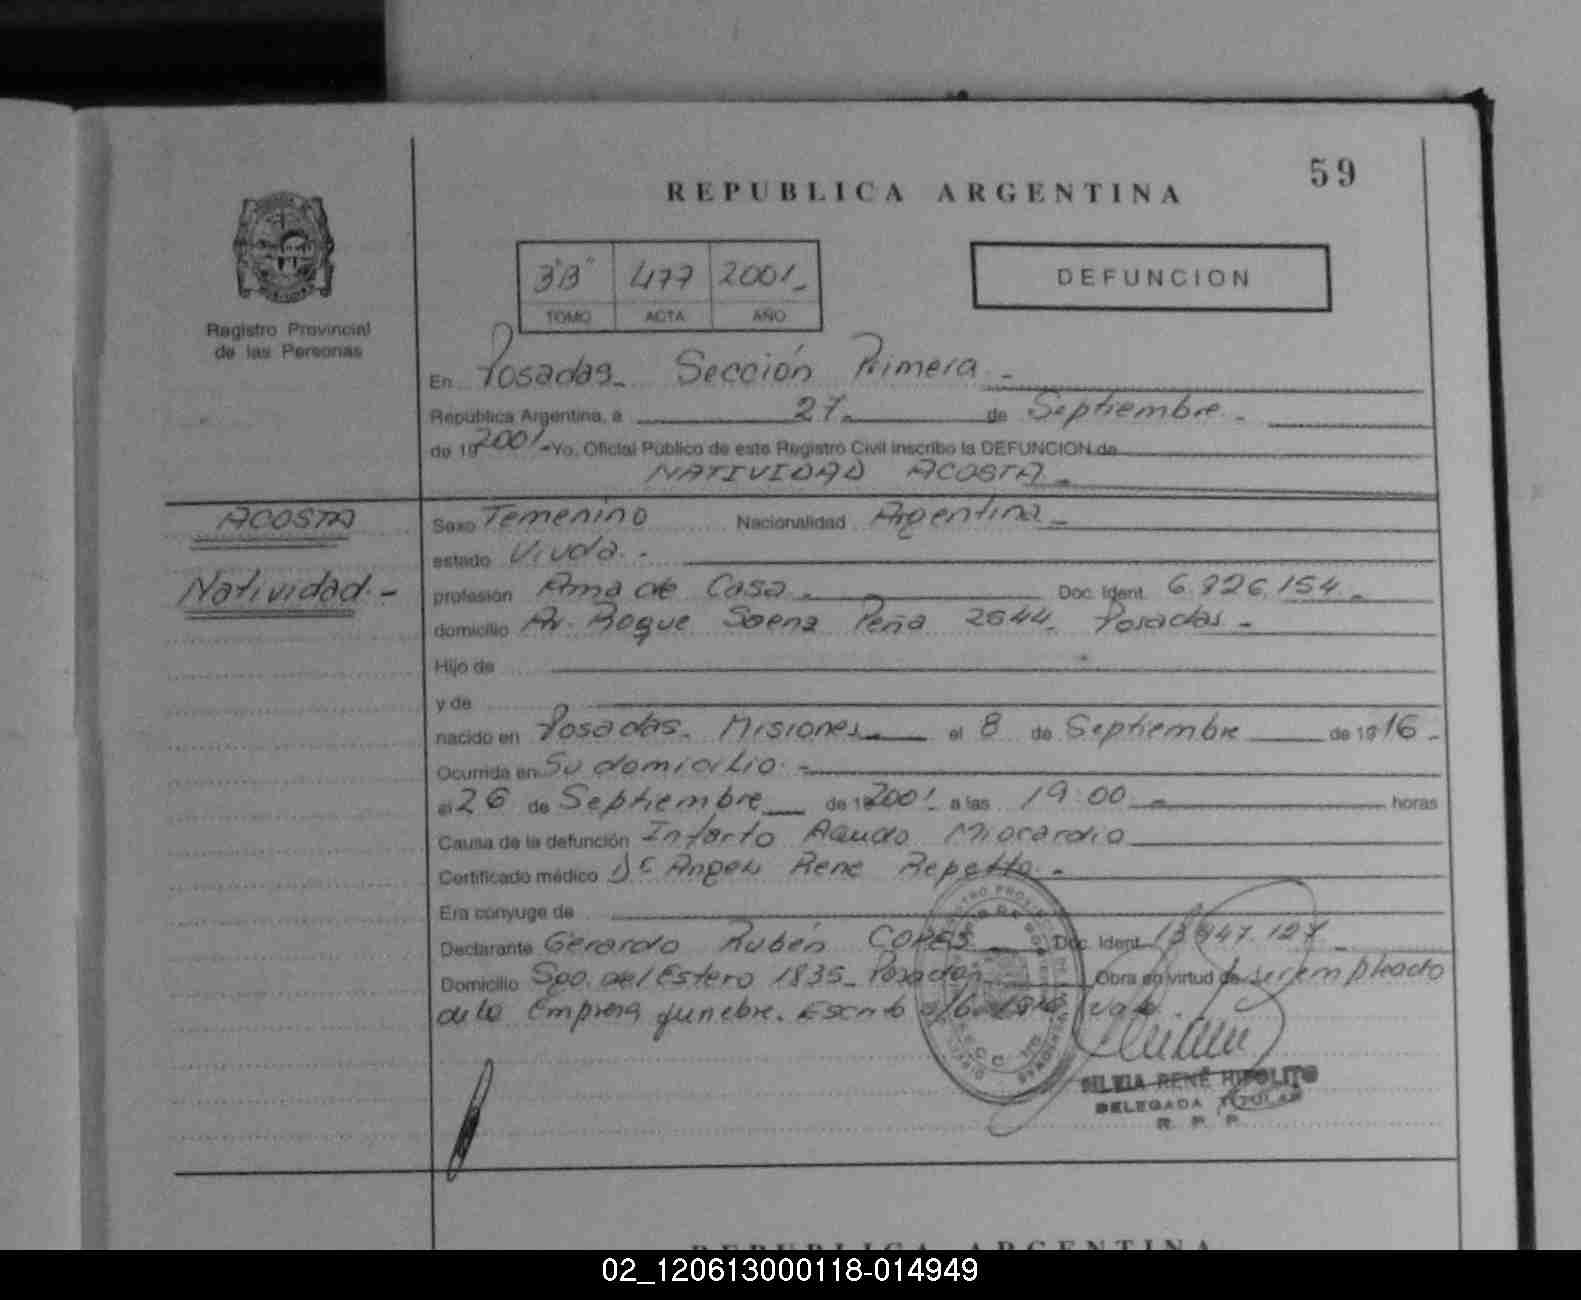 59
REPUBLICA ARGENTINA
3"B" 477 2001.-
TOMO ACTA AÑO
DEFUNCION
Registro Provincial
de las Personas
En Posadas.- Sección Primera.-
República Argentina, a 27.- de Septiembre.-
de 19 2001.- Yo, Oficial Público de este Registro Civil inscribo la DEFUNCION de
NATIVIDAD ACOSTA.-
ACOSTA
Natividad.-
Sexo Femenino Nacionalidad Argentina.-
estado Viuda.-
profesión Ama de Casa.- Doc. Ident. 6.826.154.-
domicilio Av. Roque Saenz Peña 2644. Posadas.-
Hijo de
y de
nacido en Posadas. Misiones.- el 8 de Septiembre de 1916.-
Ocurrida en Su domicilio.-
el 26 de Septiembre de 19 2001. a las 19:00.- horas
Causa de la defunción Infarto Agudo Miocardio
Certificado médico Dr Angel Rene Repetto.-
Era cónyuge de
Declarante Gerardo Rubén COPES Doc. Ident.
Domicilio Sgo. del Estero 1835.- Posadas Obra en virtud de ser empleado
de la Empresa funebre. Escrito s/b Vale.
SILVIA RENÉ HIPOLITO
DELEGADA TITULAR
R. P. P.
REPUBLICA ARGENTINA
02_120613000118-014949